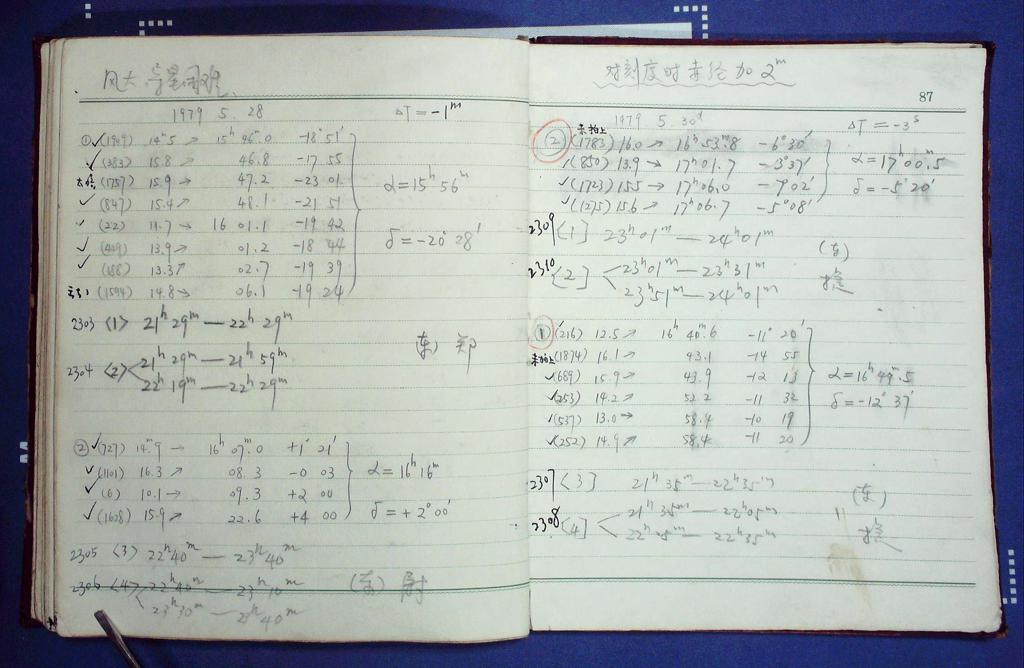 风大 导星困难
1979 5. 28 ΔT = -1ᵐ
① ✓(1909) 14ᵐ5 → 15ʰ 46ᵐ.0 -18° 51′
✓(383) 15.8 ↗ 46.8 -17 55
(1757) 15.9 ↗ 47.2 -23 01
✓(847) 15.4 ↗ 48.1 -21 51
✓(22) 11.7 → 16 01.1 -19 42
✓ 13.9 → 01.2 -18 44
✓ 13.3 ↗ 02.7 -19 39
(1594) 14.8 → 06.1 -19 24
α = 15ʰ 56ᵐ
δ = -20° 28′
2303 〈1〉 21ʰ 29ᵐ — 22ʰ 29ᵐ
2304 〈2〉 21ʰ 29ᵐ — 21ʰ 59ᵐ
22ʰ 19ᵐ — 22ʰ 29ᵐ
(东) 郑
② ✓(727) 14ᵐ.9 → 16ʰ 07ᵐ.0 +1° 21′
✓(1101) 16.3 ↗ 08.3 -0 03
✓(6) 10.1 → 09.3 +2 00
✓(1628) 15.9 ↗ 22.6 +4 00
α = 16ʰ 16ᵐ
δ = +2° 00′
2305 〈3〉 22ʰ 40ᵐ — 23ʰ 40ᵐ
2306 〈4〉 22ʰ 40ᵐ — 23ʰ 10ᵐ
23ʰ 30ᵐ — 23ʰ 40ᵐ
(东)
对刻度时赤经加 2ᵐ
87
1979 5. 30ᵈ ΔT = -3ˢ
未拍上
② (1783) 16.0 → 16ʰ 53ᵐ.8 -6° 30′
✓(850) 13.9 → 17ʰ 01.7 -3° 37′
✓(1723) 15.5 → 17ʰ 06.0 -7° 02′
✓(1275) 15.6 ↗ 17ʰ 06.7 -5° 08′
α = 17ʰ 00ᵐ.5
δ = -5° 20′
2309 [1] 23ʰ 01ᵐ — 24ʰ 01ᵐ
2310 [2] 23ʰ 01ᵐ — 23ʰ 31ᵐ
23ʰ 51ᵐ — 24ʰ 01ᵐ
(东)
① (216) 12.5 ↗ 16ʰ 40ᵐ.6 -11° 20′
未拍上 (1874) 16.1 ↗ 43.1 -14 55
✓(689) 15.9 → 43.9 -12 13
✓(253) 14.2 ↗ 52.2 -11 32
✓(537) 13.0 → 58.4 -10 19
✓(252) 14.9 ↗ 58.4 -11 20
α = 16ʰ 49ᵐ.5
δ = -12° 37′
2307 〈3] 21ʰ 35ᵐ — 22ʰ 35ᵐ
2308 [4] 21ʰ 35ᵐ — 22ʰ 05ᵐ
22ʰ 25ᵐ — 22ʰ 35ᵐ
(东)